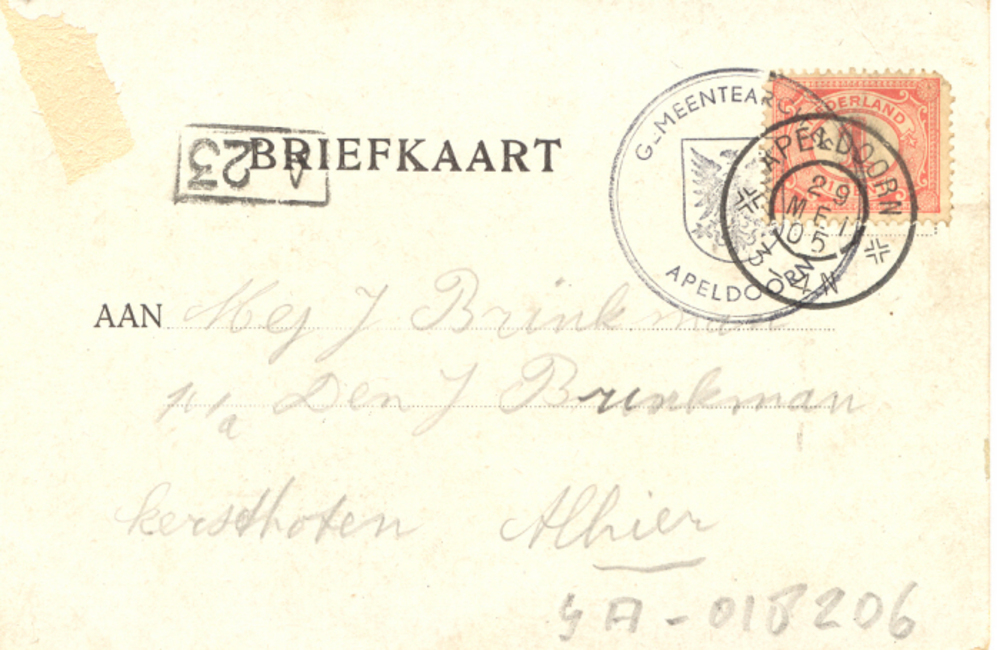 GEMEENTEARCHIEF
APELDOORN
NEDERLAND
APELDOORN
29
MEI
05
3-4N
A 23
BRIEFKAART
AAN Mej J Brinkman
p/a Den J Brinkman
Kersthoten Alhier
GA-018206